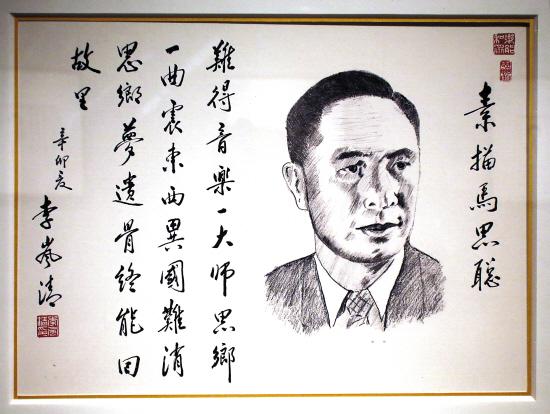 素描馬思聰
難得音樂一大师思鄉
一曲震東西異國難消
思鄉夢遺骨終能回
故里
辛卯夏
李嵐清